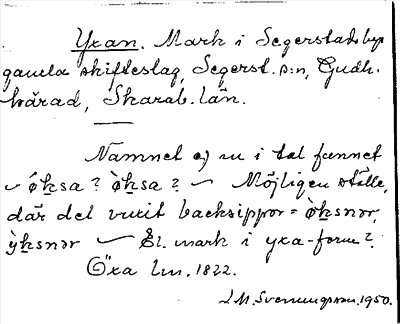 Yxan. Mark i Segerstads by
gamla skifteslag, Segerst. s:n, Gudh.
härad, Skarab. län.
Namnet ej nu i tal funnet
– ók̲sa? òk̲sa? – Möjligen ställe,
där det vuxit backsippor = òk̲snər,
ỳk̲snər – El. mark i yxa-form?
Öxa lm. 1822.
J.M. Svenungsson. 1950.